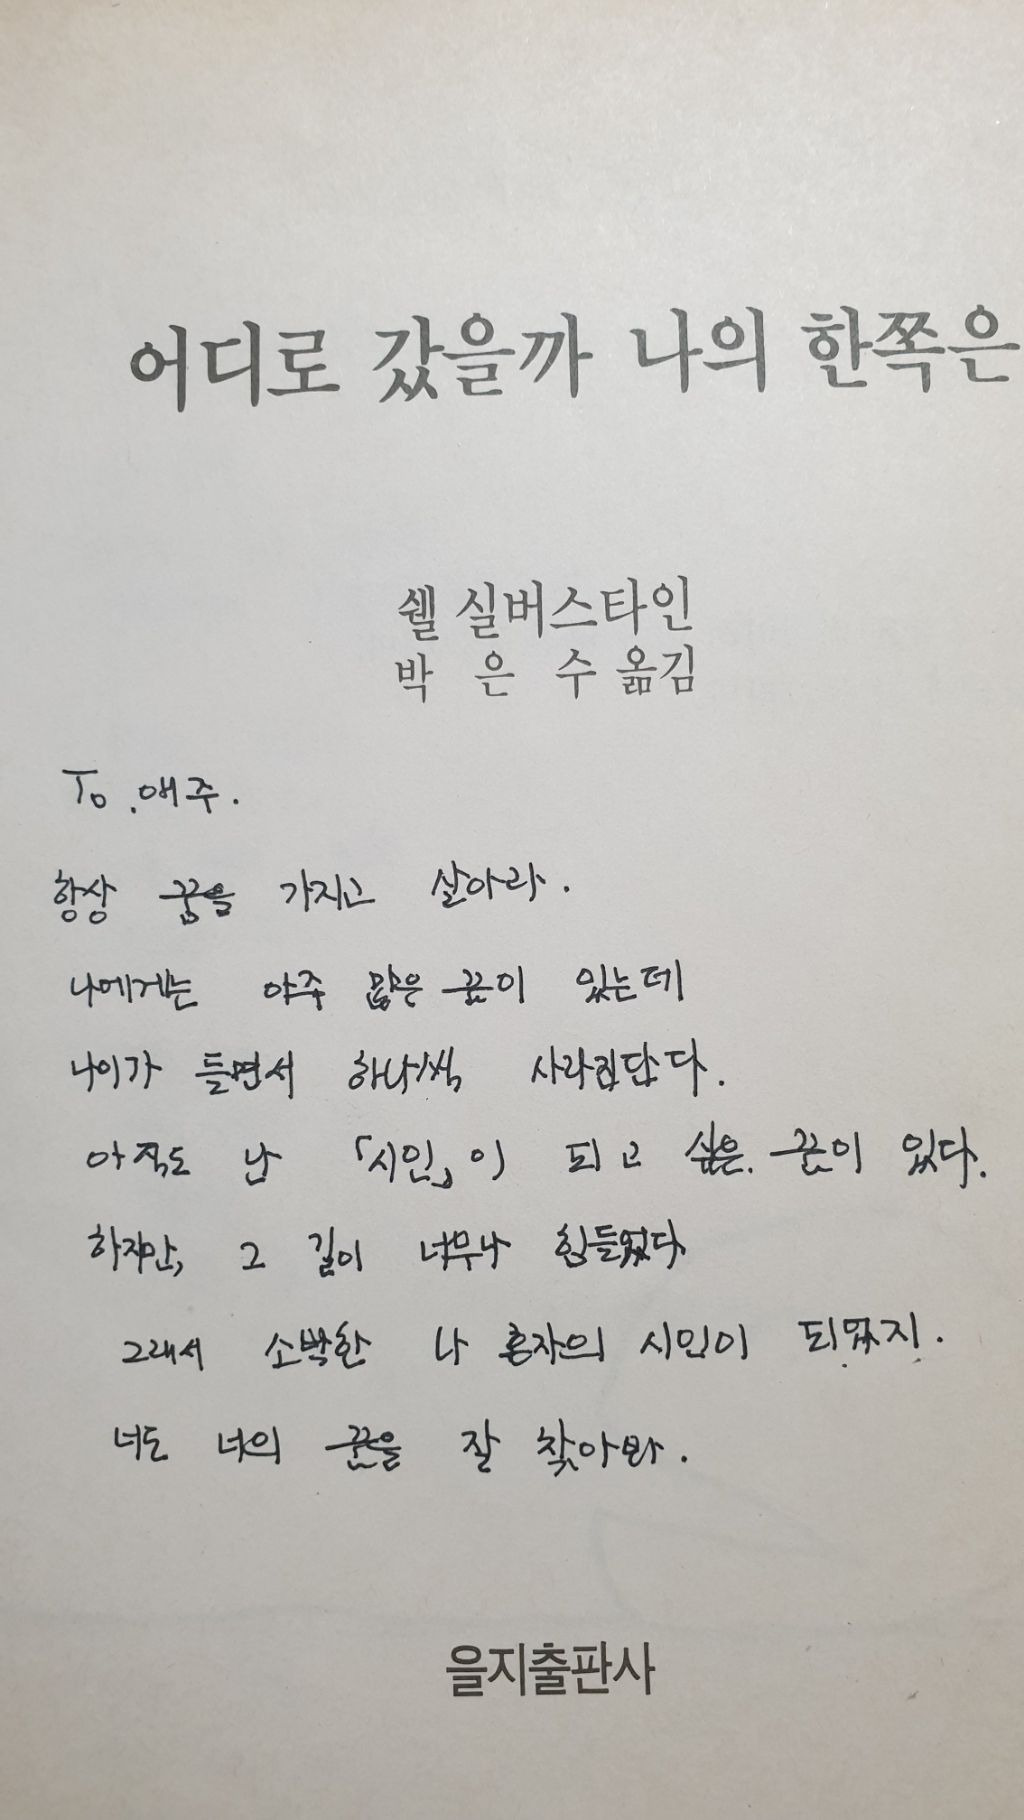 어디로 갔을까 나의 한쪽은
쉘 실버스타인
박 은 수 옮김
To. 애주.
항상 꿈을 가지고 살아라.
나에게는 아주 많은 꿈이 있는데
나이가 들면서 하나씩 사라진단다.
아직도 난 「시인」이 되고 싶은 꿈이 있다.
하지만, 그 길이 너무나 힘들었다
그래서 소박한 나 혼자의 시인이 되었지.
너도 너의 꿈을 잘 찾아봐.
을지출판사